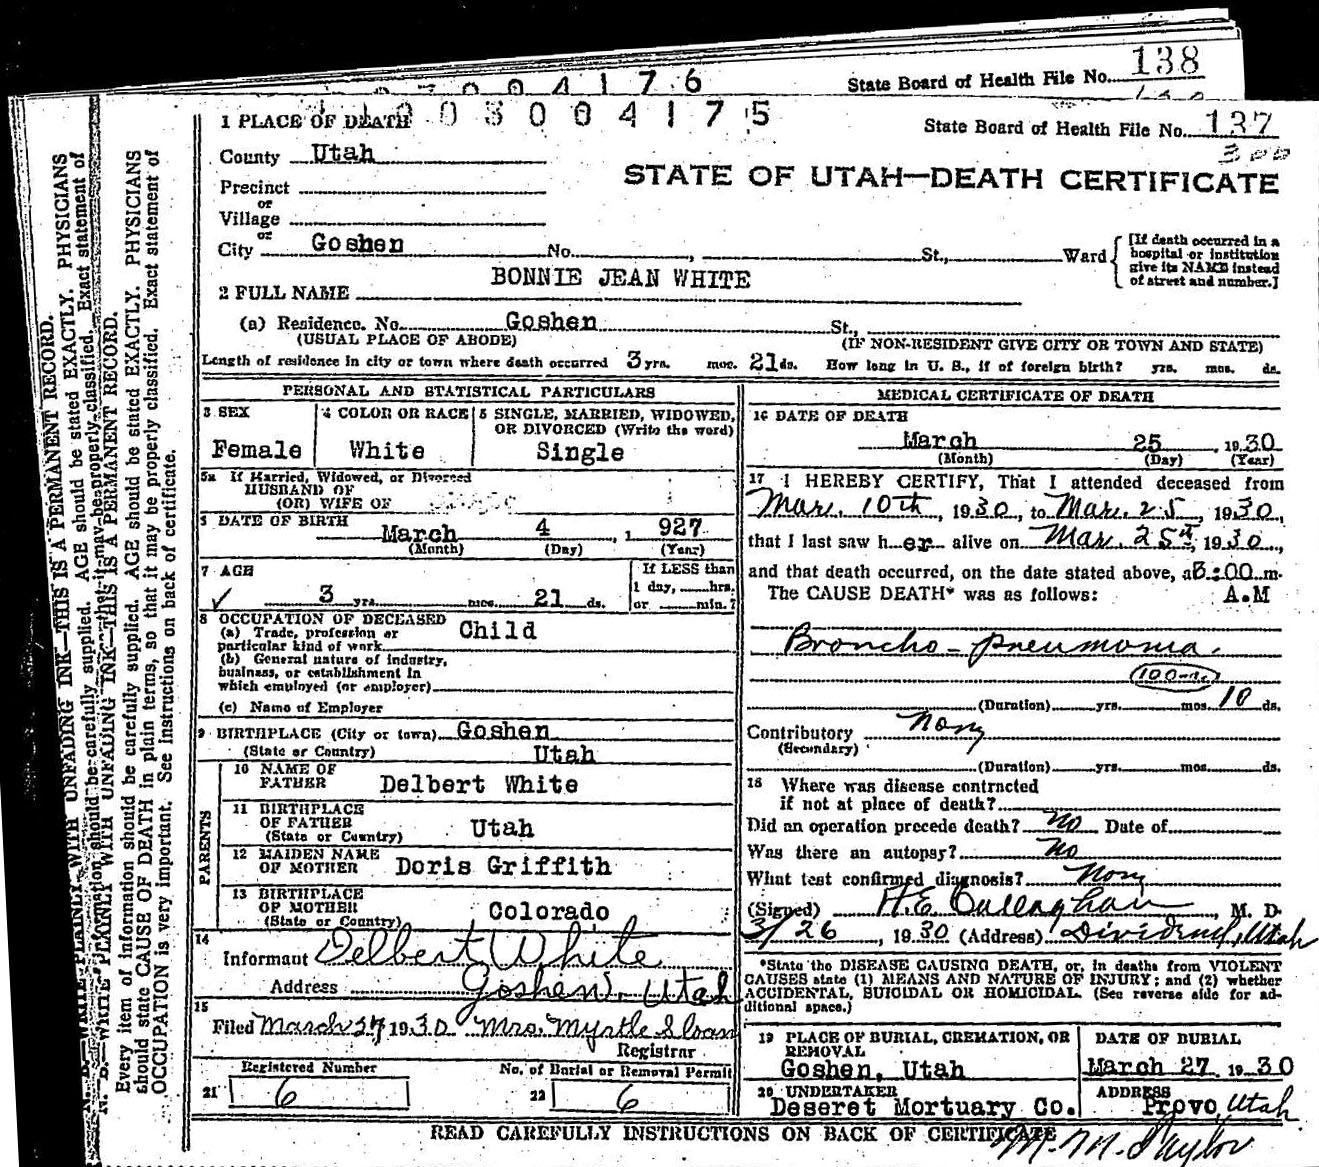 State Board of Health File No. 138
0 0 4 1 7 6
1 1 0 0 3 0 0 4 1 7 5
State Board of Health File No. 137
300
STATE OF UTAH—DEATH CERTIFICATE
1 PLACE OF DEATH
County Utah
Precinct
or
Village
or
City Goshen No. , St., Ward
[If death occurred in a
hospital or institution
give its NAME instead
of street and number.]
2 FULL NAME BONNIE JEAN WHITE
(a) Residence. No. Goshen St.,
(USUAL PLACE OF ABODE) (IF NON-RESIDENT GIVE CITY OR TOWN AND STATE)
Length of residence in city or town where death occurred 3 yrs. mos. 21 ds. How long in U. S., if of foreign birth? yrs. mos. ds.
PERSONAL AND STATISTICAL PARTICULARS
3 SEX
Female
4 COLOR OR RACE
White
5 SINGLE, MARRIED, WIDOWED,
OR DIVORCED (Write the word)
Single
5a If Married, Widowed, or Divorced
HUSBAND OF
(OR) WIFE OF
6 DATE OF BIRTH
March 4 , 1 927
(Month) (Day) (Year)
7 AGE
✓ 3 yrs. mos. 21 ds.
If LESS than
1 day, hrs.
or min.?
8 OCCUPATION OF DECEASED
(a) Trade, profession or
particular kind of work Child
(b) General nature of industry,
business, or establishment in
which employed (or employer)
(c) Name of Employer
9 BIRTHPLACE (City or town) Goshen
(State or Country) Utah
PARENTS
10 NAME OF
FATHER Delbert White
11 BIRTHPLACE
OF FATHER
(State or Country) Utah
12 MAIDEN NAME
OF MOTHER Doris Griffith
13 BIRTHPLACE
OF MOTHER
(State or Country) Colorado
14
Informant Delbert White
Address Goshen, Utah
15
Filed March 27 1930 Mrs. Myrtle Sloan
Registrar
Registered Number
21 6
No. of Burial or Removal Permit
22 6
MEDICAL CERTIFICATE OF DEATH
16 DATE OF DEATH
March 25 , 1930
(Month) (Day) (Year)
17 I HEREBY CERTIFY, That I attended deceased from
Mar. 10th, 1930, to Mar. 25, 1930,
that I last saw her alive on Mar 25th, 1930,
and that death occurred, on the date stated above, at 8:00 m.
The CAUSE DEATH* was as follows: A.M
Broncho-pneumonia.
(Duration) yrs. mos. 10 ds.
Contributory
(Secondary)
(Duration) yrs. mos. ds.
18 Where was disease contracted
if not at place of death?
Did an operation precede death? No Date of
Was there an autopsy? No
What test confirmed diagnosis?
(Signed) H.E. Callaghan, M. D.
3/26, 1930 (Address) Dividend, Utah
*State the DISEASE CAUSING DEATH, or, in deaths from VIOLENT
CAUSES state (1) MEANS AND NATURE OF INJURY; and (2) whether
ACCIDENTAL, SUICIDAL OR HOMICIDAL. (See reverse side for ad-
ditional space.)
19 PLACE OF BURIAL, CREMATION, OR
REMOVAL
Goshen, Utah
DATE OF BURIAL
March 27 1930
20 UNDERTAKER
Deseret Mortuary Co.
ADDRESS
Provo, Utah
READ CAREFULLY INSTRUCTIONS ON BACK OF CERTIFICATE
M. M. Taylor
N. B.—WRITE PLAINLY WITH UNFADING INK—THIS IS A PERMANENT RECORD.
Every item of information should be carefully supplied. AGE should be stated EXACTLY. PHYSICIANS
should state CAUSE OF DEATH in plain terms, so that it may be properly classified. Exact statement of
OCCUPATION is very important. See instructions on back of certificate.